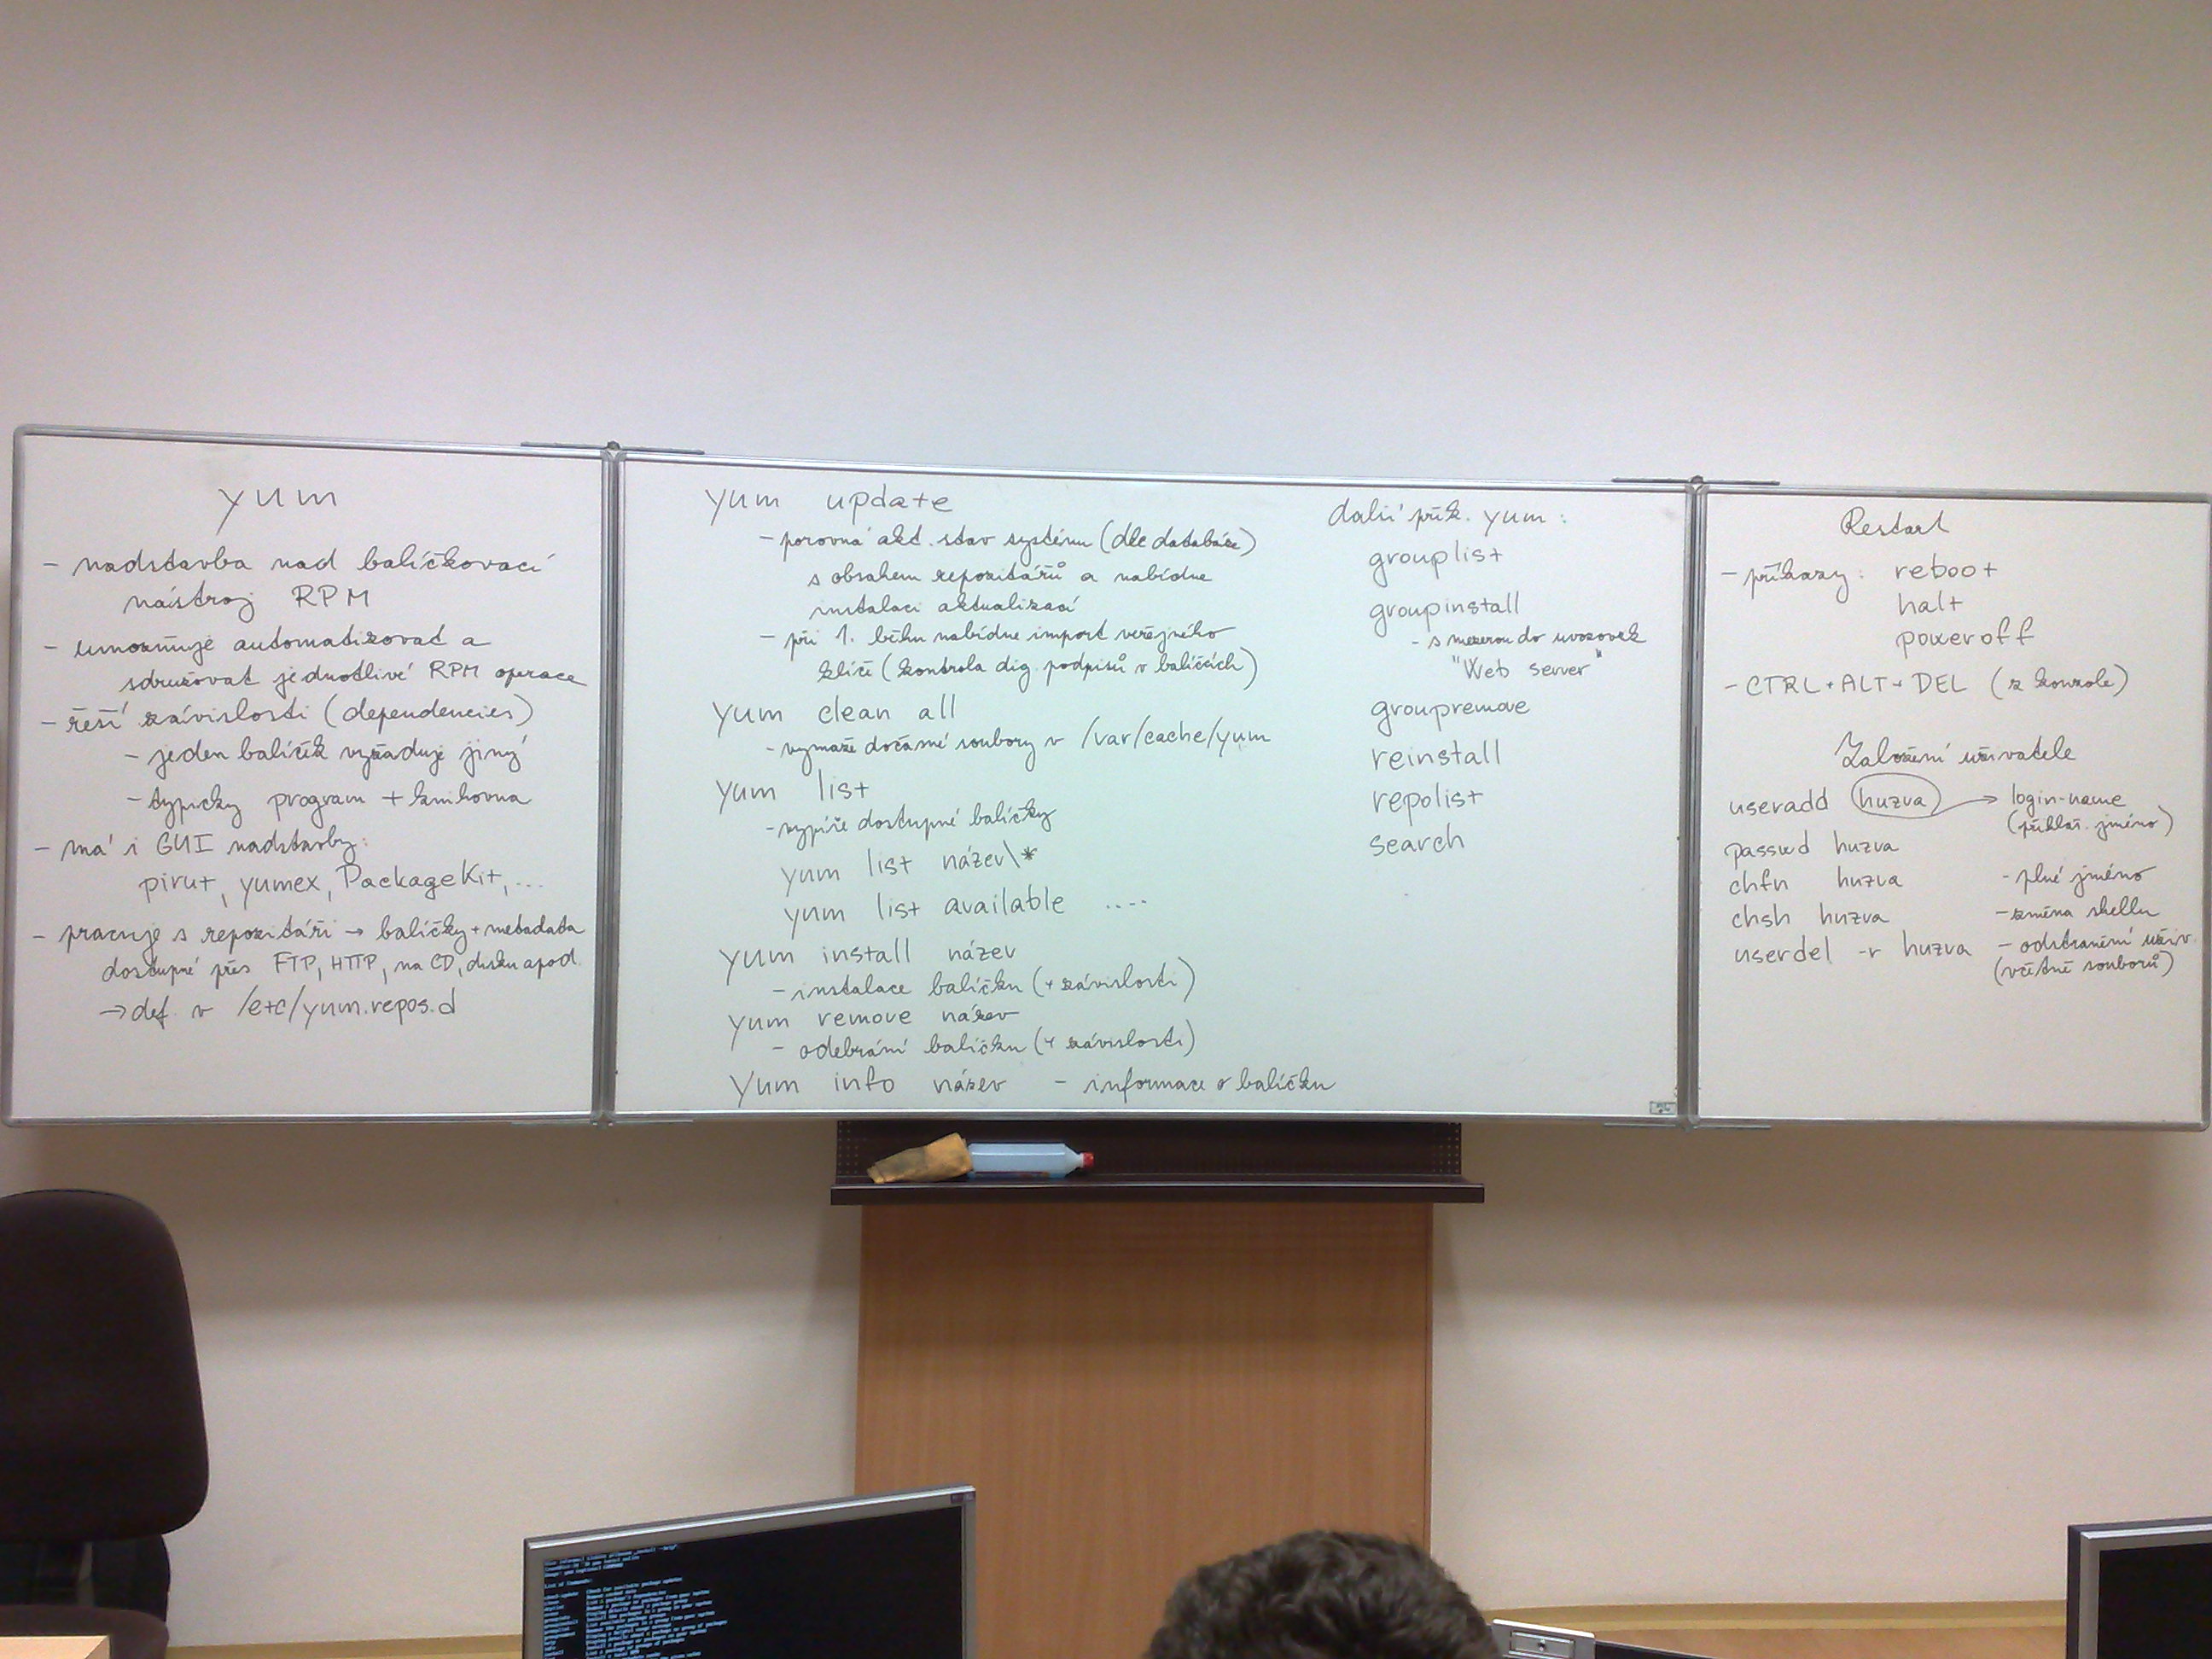 yum
- nadstavba nad balíčkovací
nástroj RPM
- umožňuje automatizovat a
sdružovat jednotlivé RPM operace
- řeší závislosti (dependencies)
- jeden balíček vyžaduje jiný
- typicky program + knihovna
- má i GUI nadstavby:
pirut, yumex, PackageKit, ...
- pracuje s repozitáři → balíčky + metadata
dostupné přes FTP, HTTP, na CD, disku apod.
→ def. v /etc/yum.repos.d
yum update
- porovná akt. stav systému (dle databáze)
s obsahem repozitářů a nabídne
instalaci aktualizací
- při 1. běhu nabídne import veřejného
klíče (kontrola dig. podpisů v balíčcích)
yum clean all
- vymaže dočasné soubory v /var/cache/yum
yum list
- vypíše dostupné balíčky
yum list název\*
yum list available ....
yum install název
- instalace balíčku (+ závislosti)
yum remove název
- odebrání balíčku (+ závislosti)
yum info název - informace o balíčku
další přík. yum:
grouplist
groupinstall
- s mezerou do uvozovek
"Web server"
groupremove
reinstall
repolist
search
Restart
- příkazy: reboot
halt
poweroff
- CTRL+ALT+DEL (z konzole)
Založení uživatele
useradd huzva → login-name
(přihlaš. jméno)
passwd huzva
chfn huzva - plné jméno
chsh huzva - změna shellu
userdel -r huzva - odstranění uživ.
(včetně souborů)